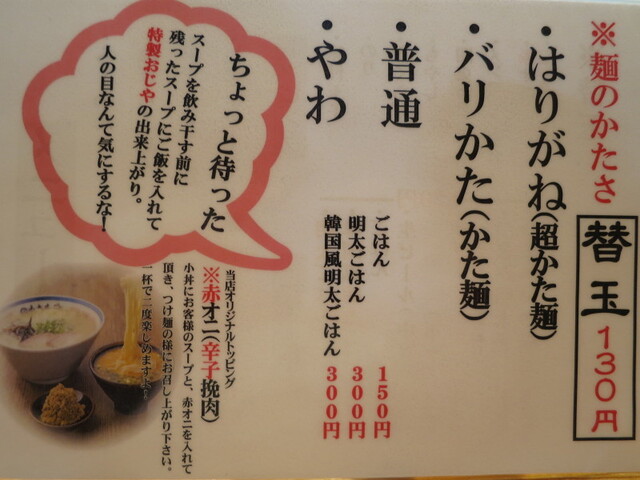 ※麺のかたさ
替玉 130円
・はりがね(超かた麺)
・バリかた(かた麺)
・普通
・やわ
ごはん 150円
明太ごはん 300円
韓国風明太ごはん 300円
ちょっと待った
スープを飲み干す前に
残ったスープにご飯を入れて
特製おじやの出来上がり。
人の目なんて気にするな!
当店オリジナルトッピング
※赤オニ(辛子挽肉)
小丼にお客様のスープと、赤オニを入れて
頂き、つけ麺の様にお召し上がり下さい。
一杯で二度楽しめますよ!